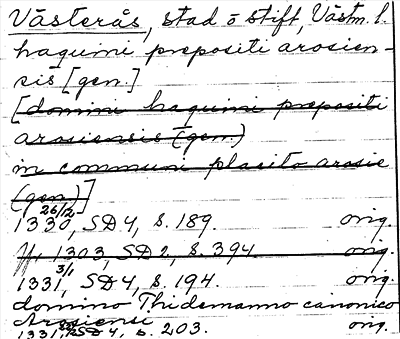 Västerås, stad ō stift, Västm. l.
haquini prepositi arosien-
sis [gen.]
[domini haquini prepositi
arosiensis (gen.)
in communi placito arosie
(gen.)]
1330 26/12, SD 4, s. 189. orig.
1303, SD 2, s. 394 orig.
1331 3/1, SD 4, s. 194. orig.
domino Thidemanno canonico
Arosiensi
1331, SD 4, s. 203. orig.